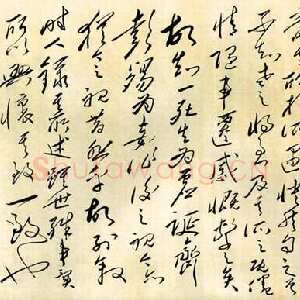 不知老之將至及其所之既倦
情隨事遷感慨係之矣
故知一死生為虛誕齊
彭殤為妄作後之視今亦
猶今之視昔悲夫故列敘
時人錄其所述雖世殊事異
所以興懷其致一也
Shufawang.cn